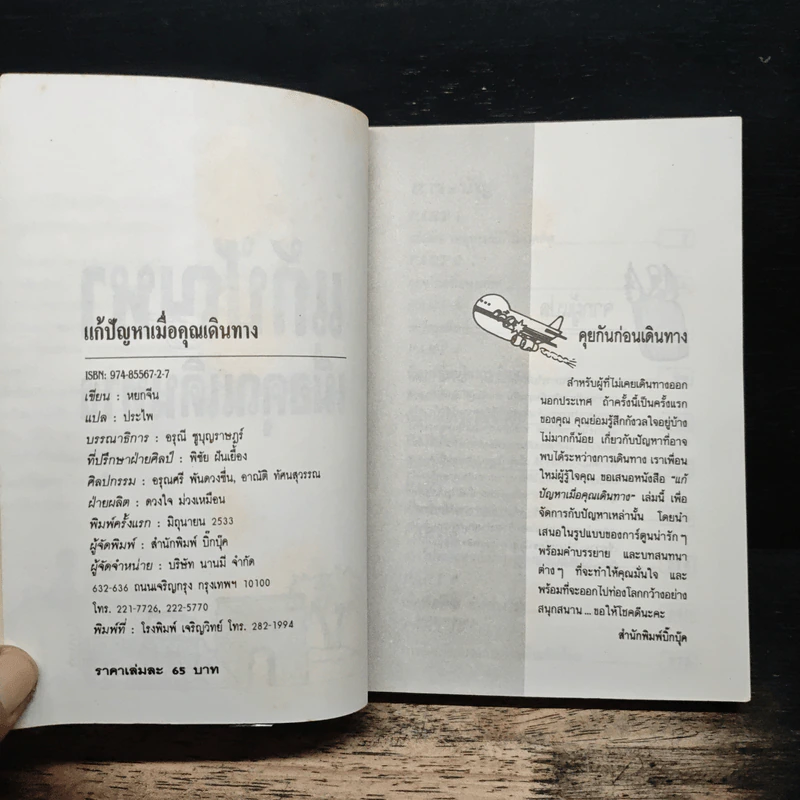 แก้ปัญหาเมื่อคุณเดินทาง
ISBN: 974-85567-2-7
เขียน : หยกจีน
แปล : ประไพ
บรรณาธิการ : อรุณี ชูบุญราษฎร์
ที่ปรึกษาฝ่ายศิลป์ : พิชัย ฝั้นเยื้อง
ศิลปกรรม : อรุณศรี พันดวงชื่น, อาณัติ ทัศนสุวรรณ
ฝ่ายผลิต : ดวงใจ ม่วงเหมือน
พิมพ์ครั้งแรก : มิถุนายน 2533
ผู้จัดพิมพ์ : สำนักพิมพ์ บิ๊กบุ๊ค
ผู้จัดจำหน่าย : บริษัท นานมี จำกัด
632-636 ถนนเจริญกรุง กรุงเทพฯ 10100
โทร. 221-7726, 222-5770
พิมพ์ที่ : โรงพิมพ์ เจริญวิทย์ โทร. 282-1994
ราคาเล่มละ 65 บาท
คุยกันก่อนเดินทาง
สำหรับผู้ที่ไม่เคยเดินทางออก
นอกประเทศ ถ้าครั้งนี้เป็นครั้งแรก
ของคุณ คุณย่อมรู้สึกกังวลใจอยู่บ้าง
ไม่มากก็น้อย เกี่ยวกับปัญหาที่อาจ
พบได้ระหว่างการเดินทาง เราเพื่อน
ใหม่ผู้รู้ใจคุณ ขอเสนอหนังสือ "แก้
ปัญหาเมื่อคุณเดินทาง" เล่มนี้ เพื่อ
จัดการกับปัญหาเหล่านั้น โดยนำ
เสนอในรูปแบบของการ์ตูนน่ารัก ๆ
พร้อมคำบรรยาย และบทสนทนา
ต่าง ๆ ที่จะทำให้คุณมั่นใจ และ
พร้อมที่จะออกไปท่องโลกกว้างอย่าง
สนุกสนาน ... ขอให้โชคดีนะคะ
สำนักพิมพ์บิ๊กบุ๊ค